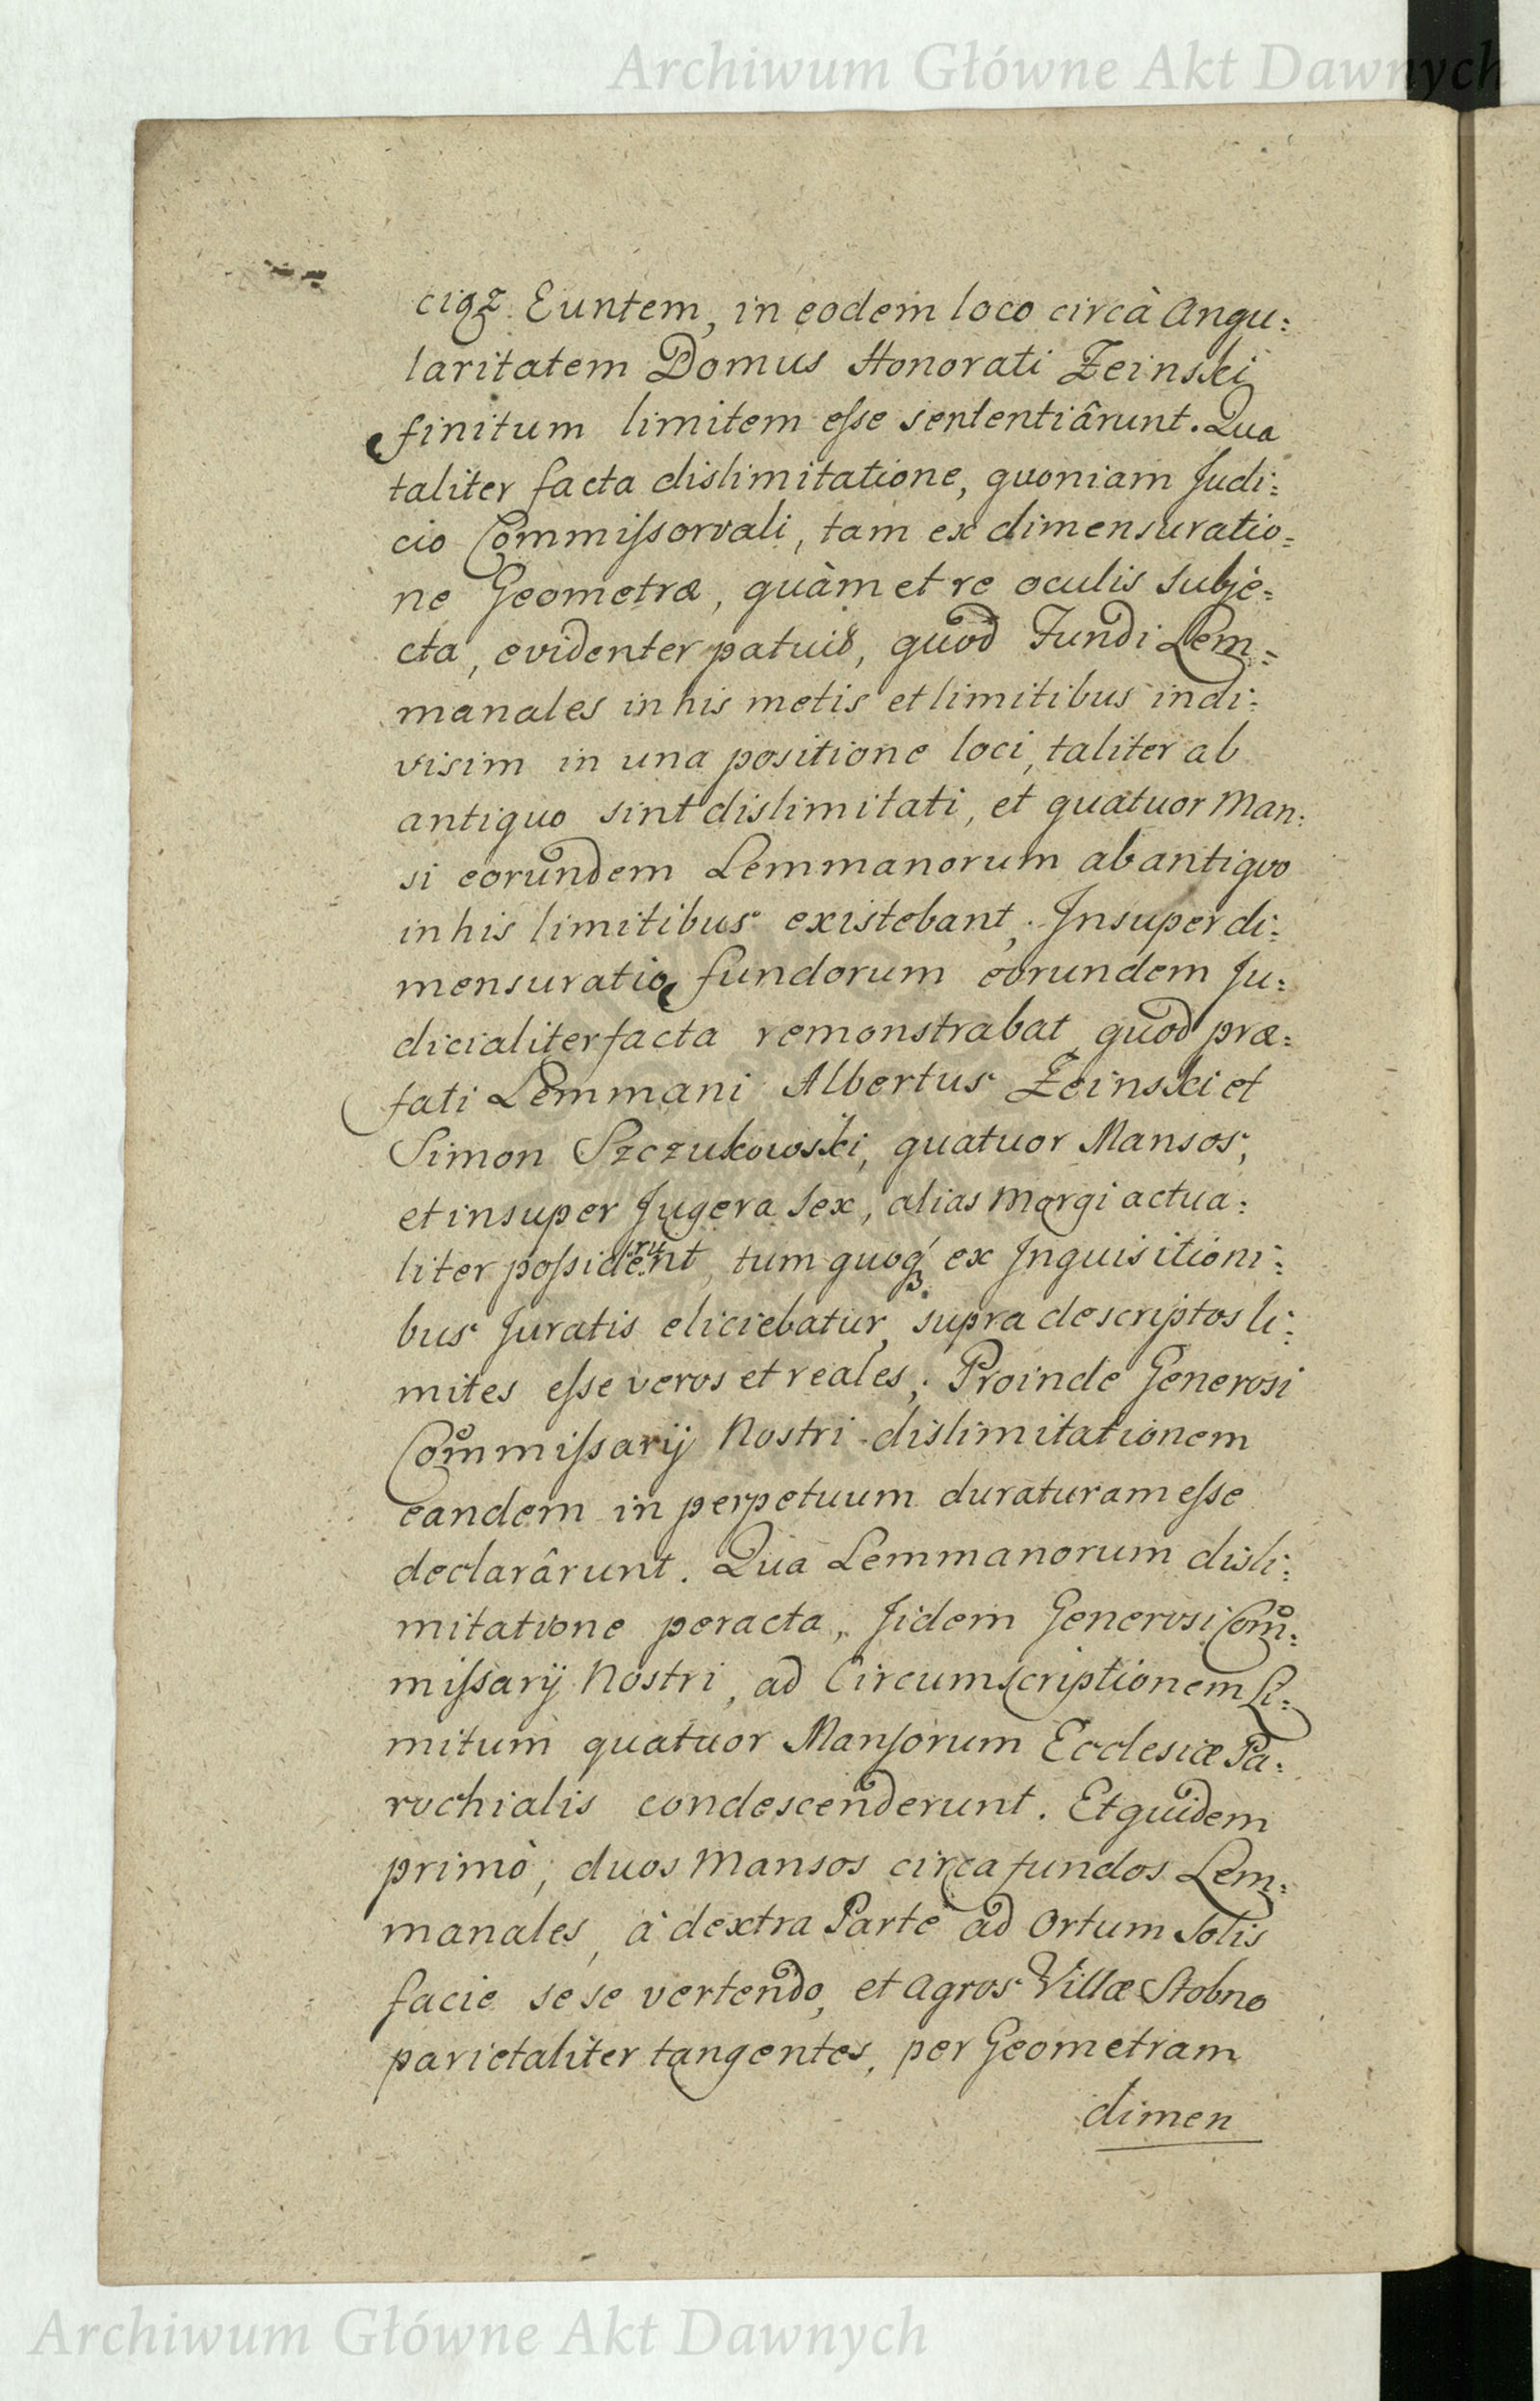 Archiwum Główne Akt Dawnych
ciqz Euntem, in eodem loco circà Angu:
laritatem Domus Honorati Zeinski
finitum limitem eſse sententiârunt. Qua
taliter facta dislimitatione, quoniam Judi:
cio Commiſsorvali, tam ex dimensuratio=
ne Geometræ, quàm et re oculis subje=
cta, evidenter patuit, quod Fundi Lem=
manales in his metis et limitibus indi:
visim in una positione loci, taliter ab
antiquo sint dislimitati, et quatuor Man:
si eorundem Lemmanorum ab antiquo
in his limitibus existebant,. Insuper di:
mensuratio fundorum eorundem Ju:
dicialiter facta remonstrabat, quod præ=
fati Lemmani Albertus Zeinski et
Simon Szczukowski, quatuor Mansos,
et insuper Jugera sex, alias Morgi actua:
liter poſsiderunt, tum quoqꝫ ex Inquisitioni:
bus Juratis eliciebatur, supra descriptos li:
mites eſse veros et reales,. Proinde Generosi
Commiſsarij Nostri dislimitationem
eandem in perpetuum duraturam eſse
declarârunt. Qua Lemmanorum disli:
mitatione peracta, Jidem Generosi Com:
miſsarij Nostri, ad Circumscriptionem Li:
mitum quatuor Manſorum Ecclesiæ Pa:
rochialis condescenderunt. Et quidem
primò, duos Mansos circa fundos Lem:
manales, à dextra Parte ad Ortum Solis
facie sese vertendo, et Agros Villæ Stobno
parietaliter tangentes, per Geometram
dimen
Archiwum Główne Akt Dawnych